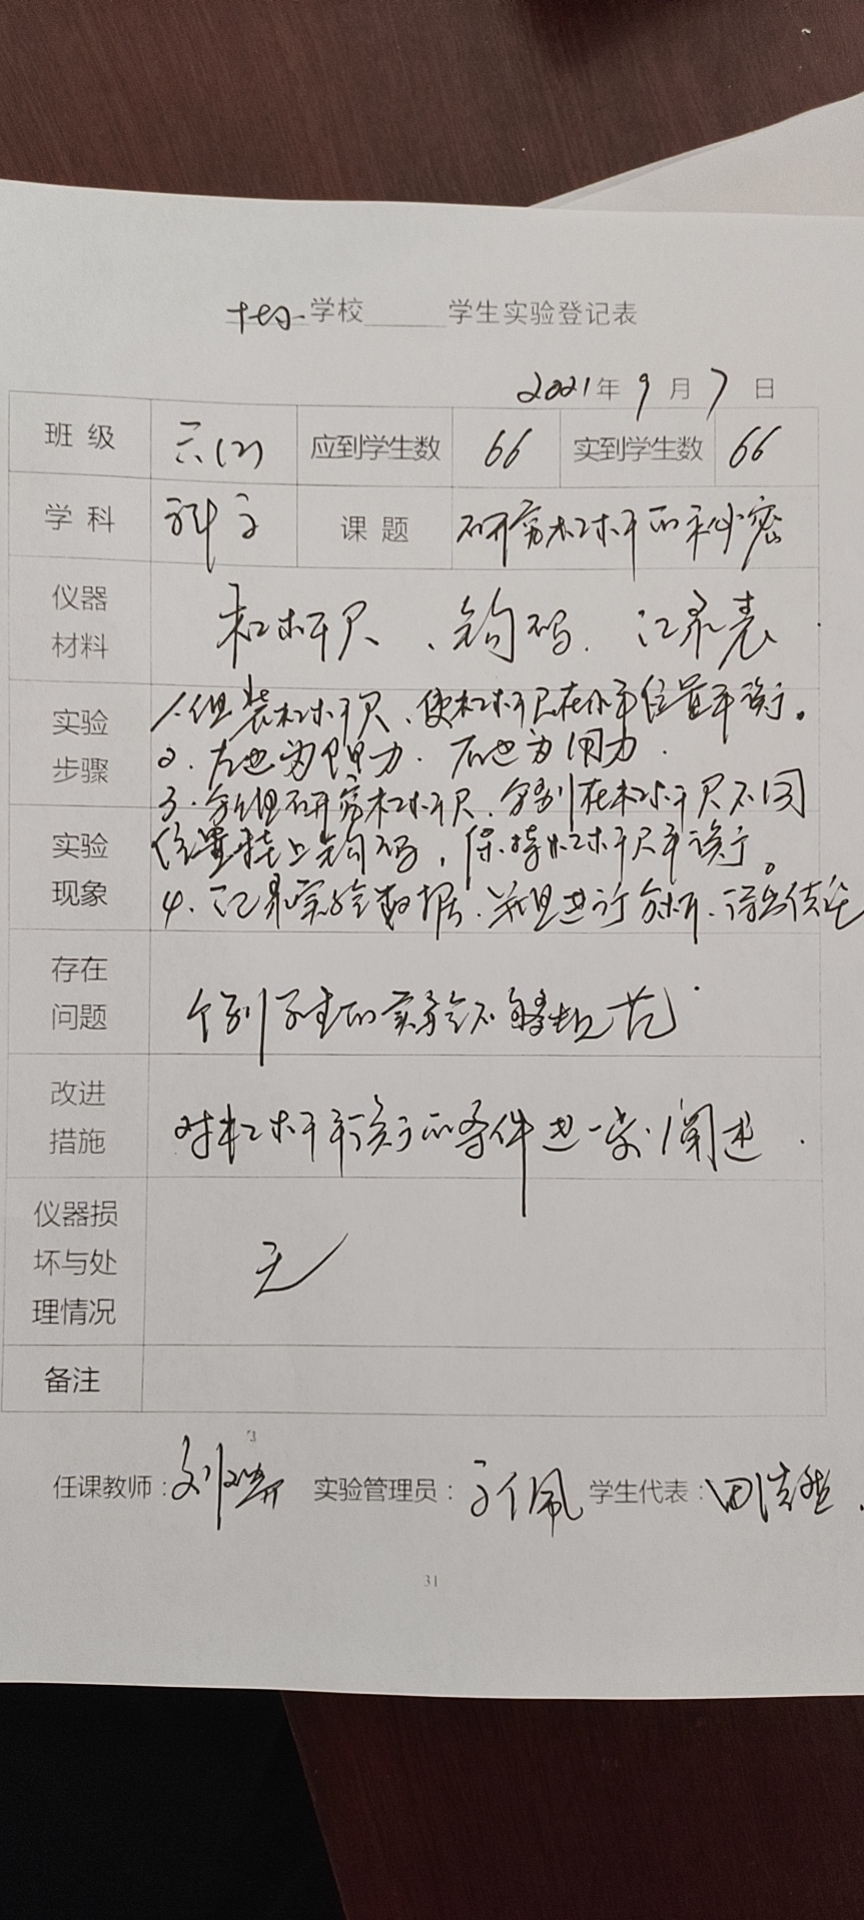 十七小学校 学生实验登记表
2021年9月7日
班级 六(2) 应到学生数 66 实到学生数 66
学科 科学 课题 研究杠杆的秘密
仪器材料 杠杆尺、钩码、记录表
实验步骤
1.组装杠杆尺、使杠杆尺在水平位置平衡。
2.左边为阻力.右边为用力.
3.分组研究杠杆尺.分别在杠杆尺不同
实验现象
位置挂上钩码,保持杠杆尺平衡。
4.记录实验数据.并且进行分析.得出结论
存在问题 个别学生的实验不够规范.
改进措施 对杠杆平衡的条件进一步阐述.
仪器损坏与处理情况 无
备注
任课教师: 刘 实验管理员: 佩 学生代表: 田浩然.
31